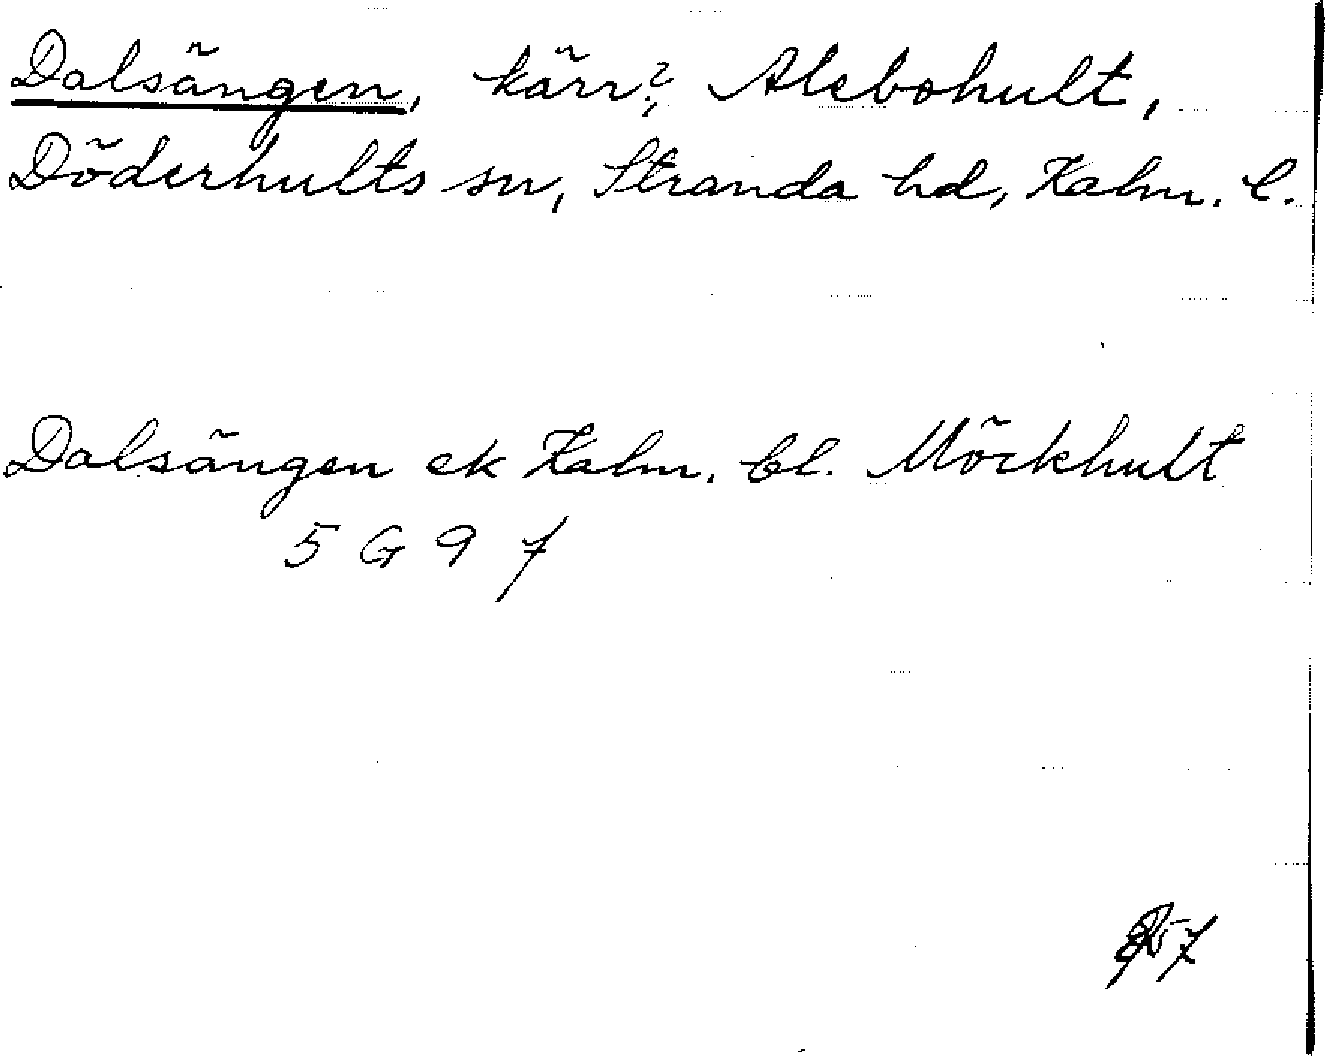 Dalsängen, kärr?, Alebohult,
Döderhults sn, Stranda hd, Kalm. l.
Dalsängen ek Kalm. bl. Möckhult
5 G 9 f